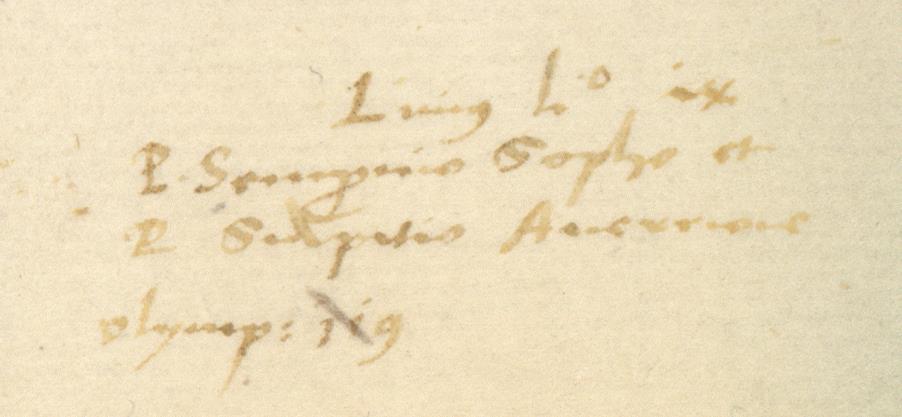 Livius l.o ix
P. Sempronio Sopho et
P Sulpitio Auerrione
olymp: 119